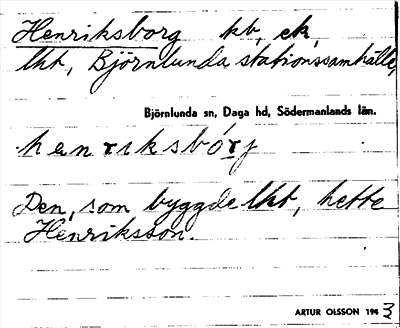 Henriksborg kb, ek,
lht, Björnlunda stationssamhälle,
Björnlunda sn, Daga hd, Södermanlands län.
henriksbórj
Den, som byggde lht, hette
Henriksson.
ARTUR OLSSON 1943